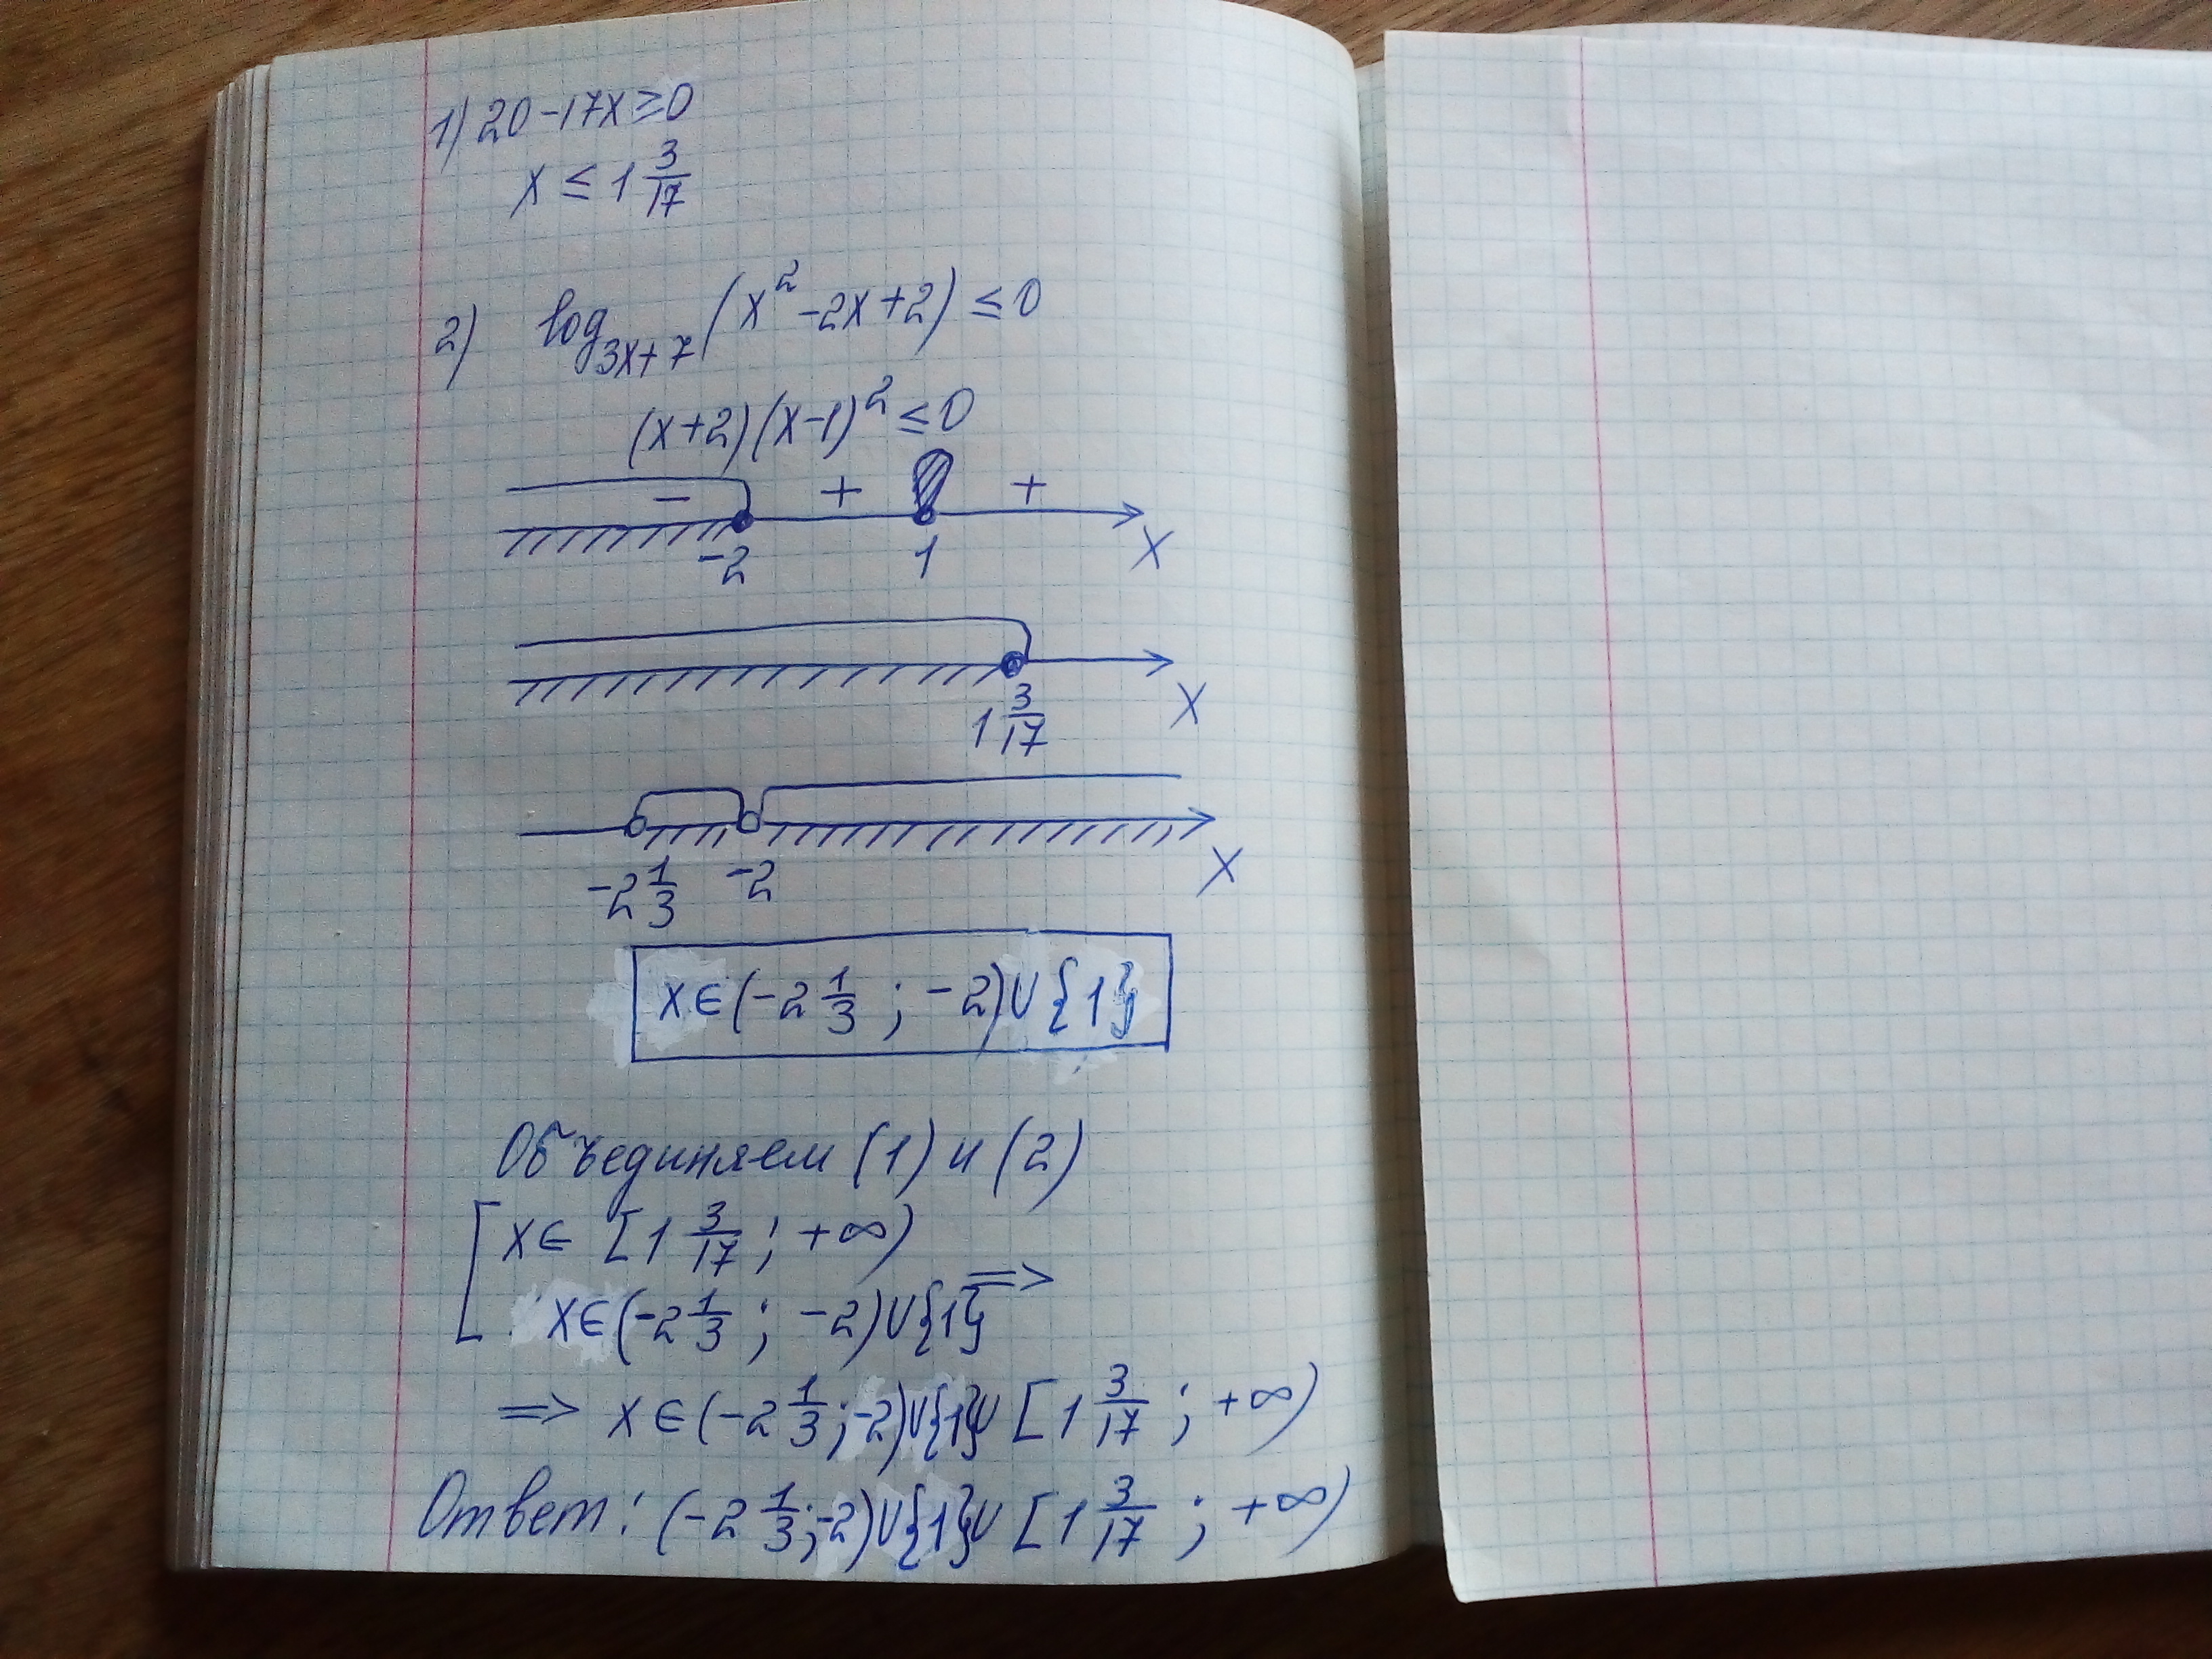 1) 20-17x≥0
x ≤ 1 3/17
2) log_{3x+7}(x²-2x+2) ≤ 0
(x+2)(x-1)² ≤ 0
- + +
-2 1 x
1 3/17 x
-2 1/3 -2 x
x∈(-2 1/3 ; -2)∪{1}
Объединяем (1) и (2)
[ x∈ [1 3/17 ; +∞)
x∈(-2 1/3 ; -2)∪{1} =>
=> x∈(-2 1/3 ; -2)∪{1}∪ [1 3/17 ; +∞)
Ответ: (-2 1/3 ; -2)∪{1}∪ [1 3/17 ; +∞)